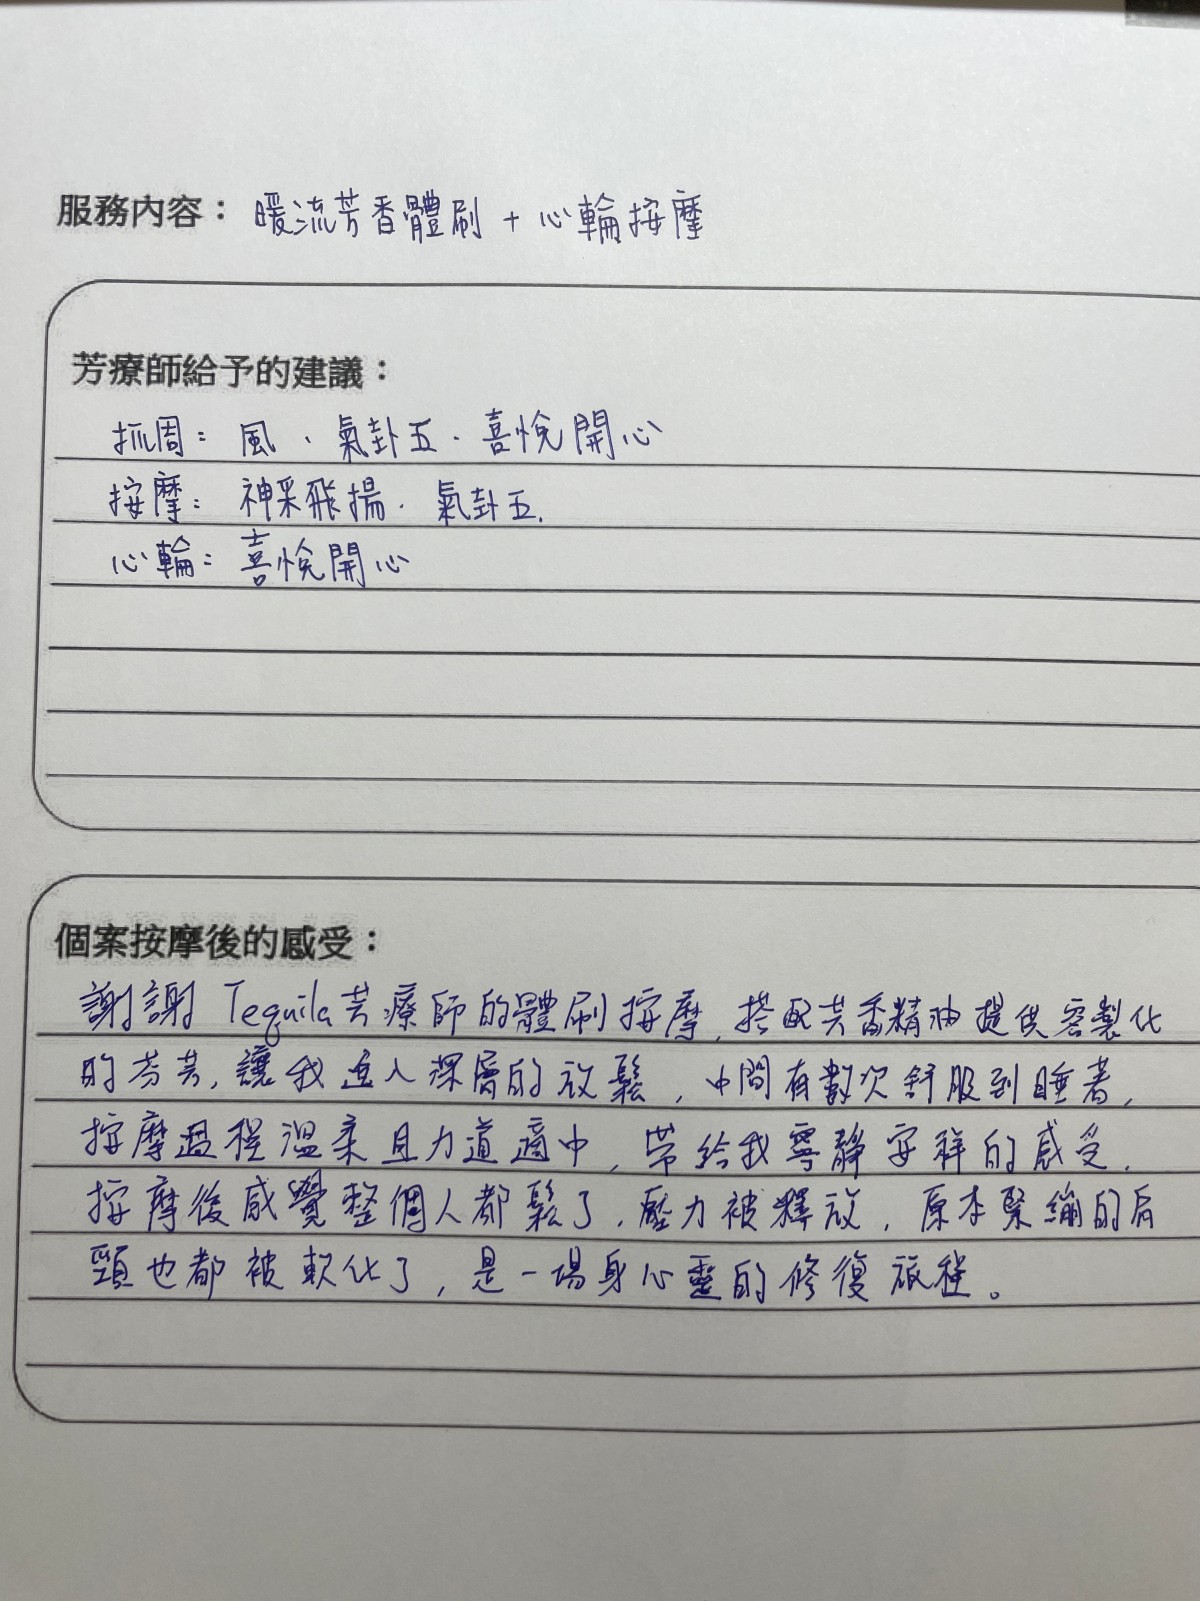 服務內容：暖流芳香體刷 + 心輪按摩
芳療師給予的建議：
抓周：風、氣卦五、喜悅開心
按摩：神采飛揚、氣卦五、
心輪：喜悅開心
個案按摩後的感受：
謝謝Tequila芳療師的體刷按摩，搭配芳香精油提供客製化
的芬芳，讓我進入深層的放鬆，中間有數次舒服到睡著，
按摩過程溫柔且力道適中，帶給我寧靜安祥的感受，
按摩後感覺整個人都鬆了，壓力被釋放，原本緊繃的肩
頸也都被軟化了，是一場身心靈的修復旅程。